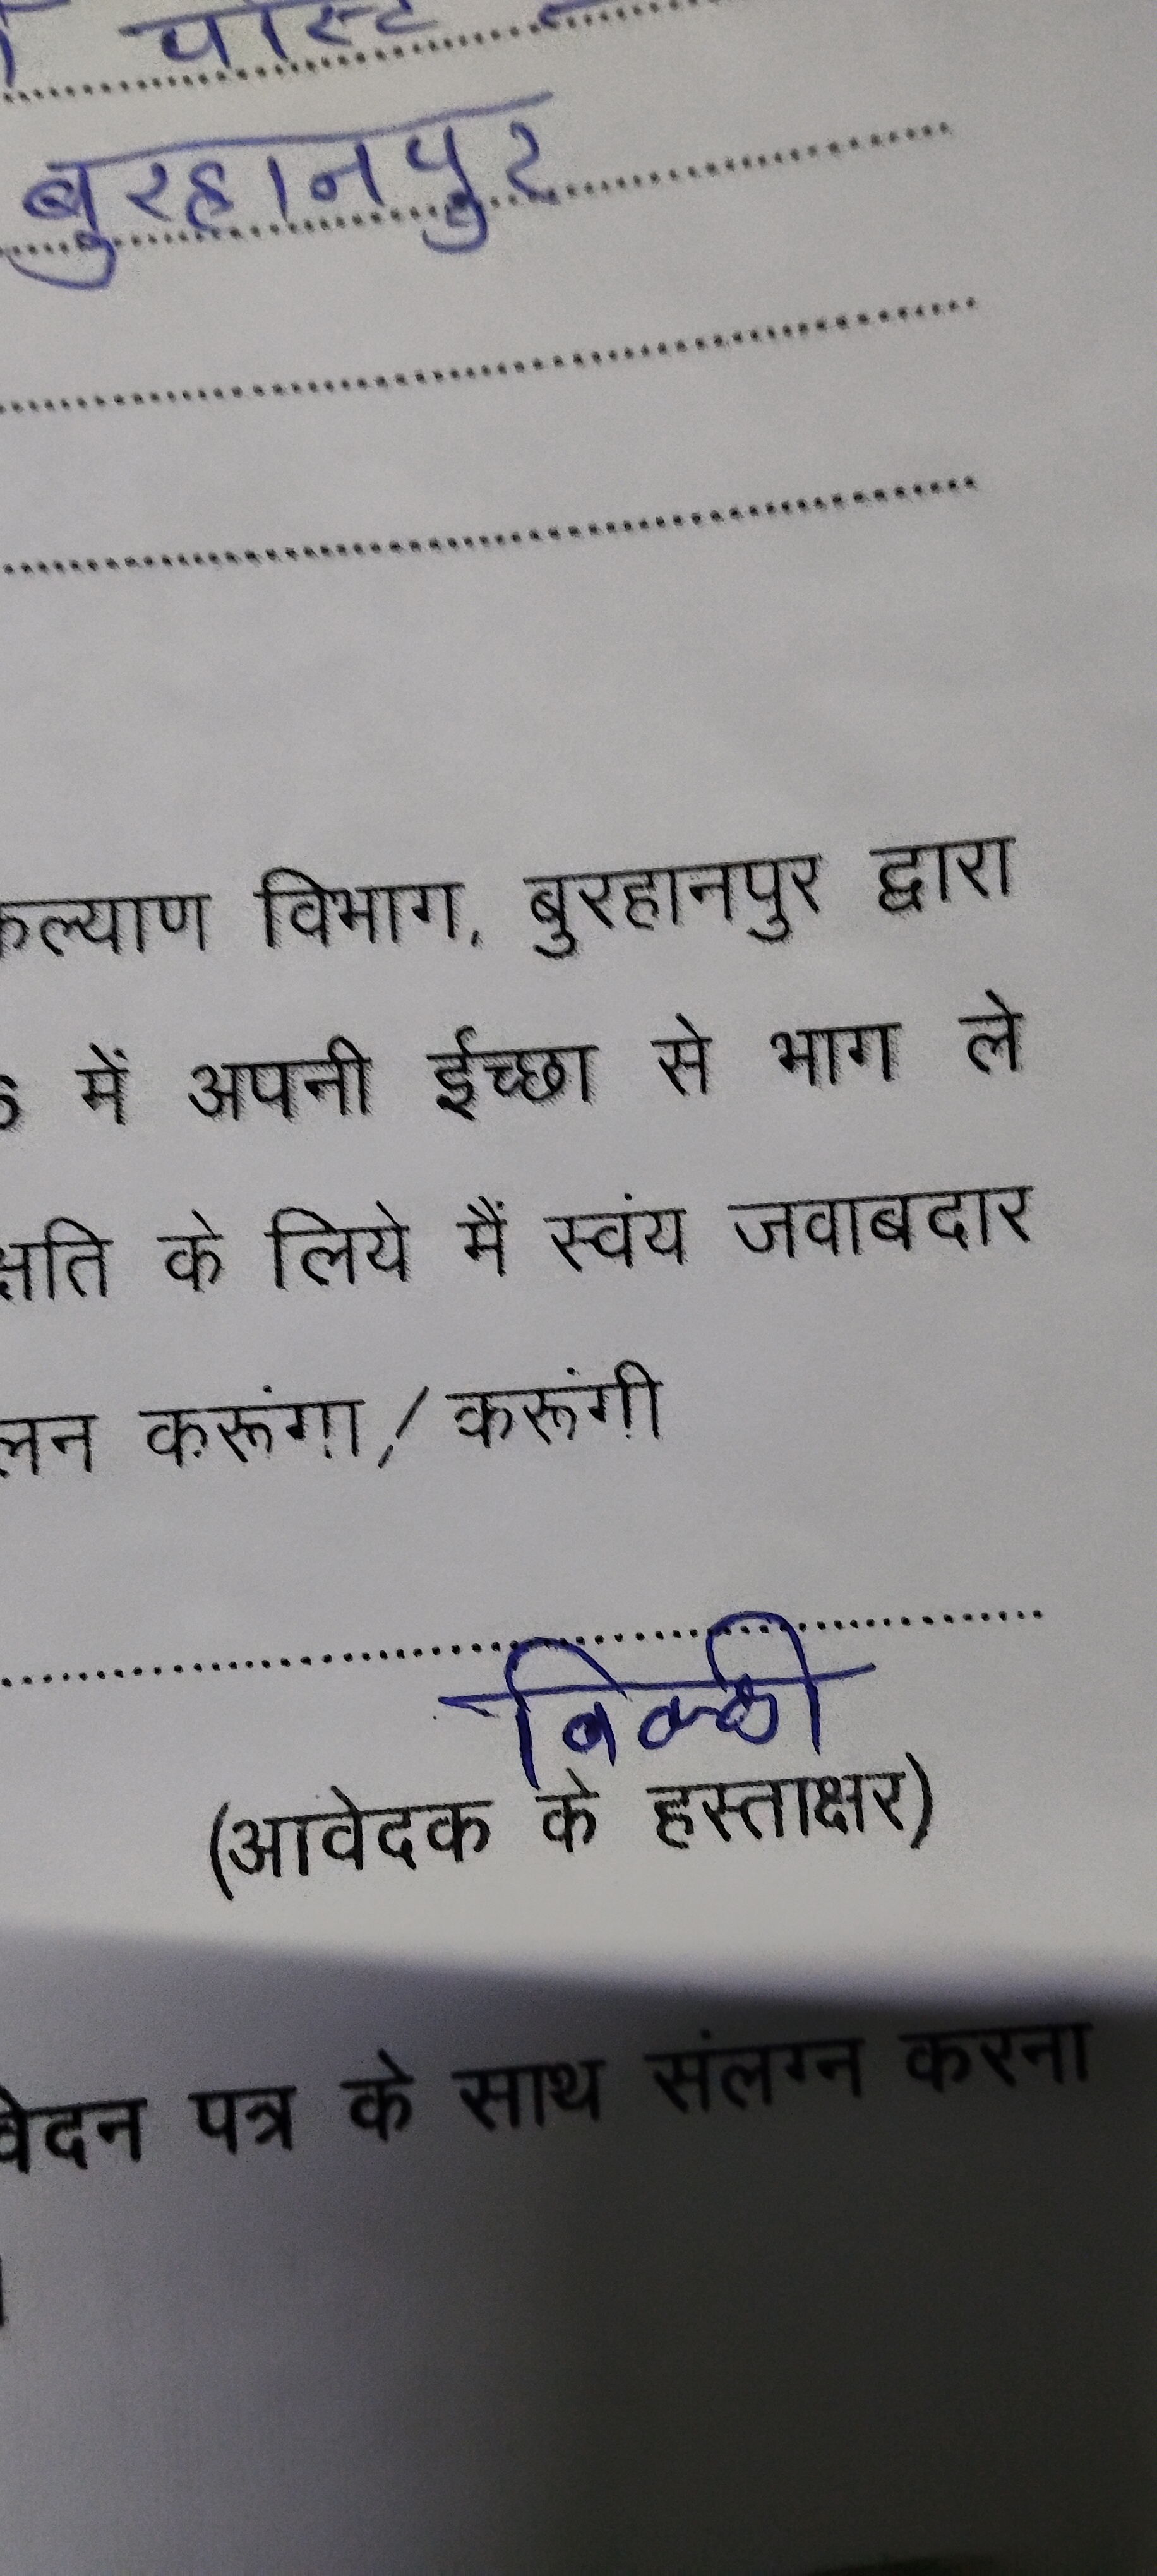 पोस्ट
बुरहानपुर
कल्याण विभाग, बुरहानपुर द्वारा
में अपनी ईच्छा से भाग ले
क्षति के लिये मैं स्वंय जवाबदार
करूंगा/करूंगी
(आवेदक के हस्ताक्षर)
पत्र के साथ संलग्न करना